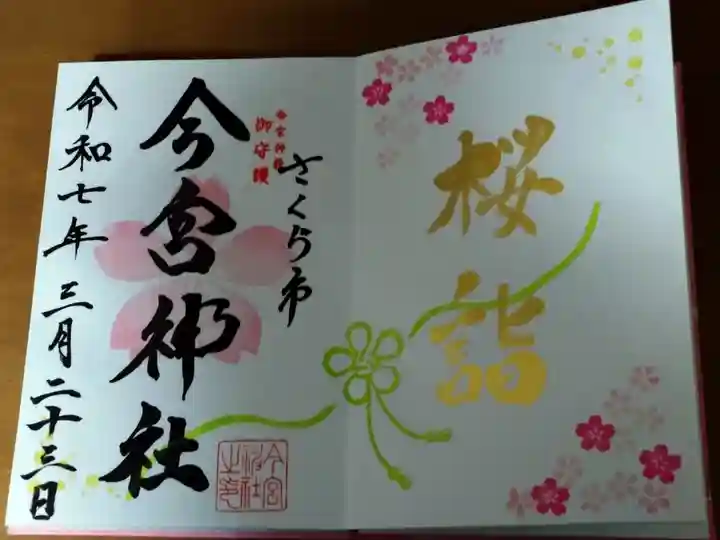 桜詣
今宮神社
御守護
さくら市
今宮神社
令和七年 三月二十三日
今宮神社之印